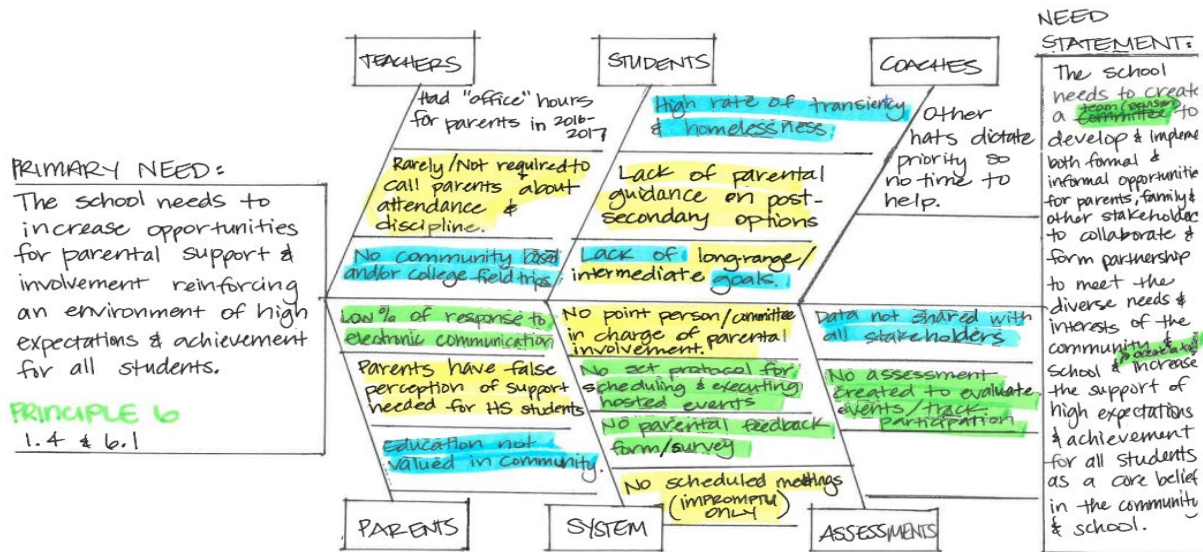 PRIMARY NEED:
The school needs to
increase opportunities
for parental support &
involvement reinforcing
an environment of high
expectations & achievement
for all students.
PRINCIPLE 6
1.4 & 6.1
TEACHERS
Had "office" hours
for parents in 2016-
2017
Rarely/Not required to
call parents about
attendance &
discipline.
No community based
and/or college field trips
STUDENTS
High rate of transiency
& homelessness
Lack of parental
guidance on post-
secondary options
Lack of long-range/
intermediate goals.
COACHES
Other
hats dictate
priority so
no time to
help.
Low % of response to
electronic communication
Parents have false
perception of support
needed for HS students
Education not
valued in community.
PARENTS
No point person/committee
in charge of parental
involvement.
No set protocol for
scheduling & executing
hosted events
No parental feedback
form/survey
No scheduled meetings
(impromptu
ONLY)
SYSTEM
Data not shared with
all stakeholders
No assessment
created to evaluate
events/track
participation
ASSESSMENTS
NEED
STATEMENT:
The school
needs to create
a team
committee to
develop & impleme
both formal &
informal opportunitie
for parents, family &
other stakeholder
to collaborate &
form partnership
to meet the
diverse needs &
interests of the
community &
school & increase
the support of
high expectations
& achievement
for all students
as a core belief
in the community
& school.